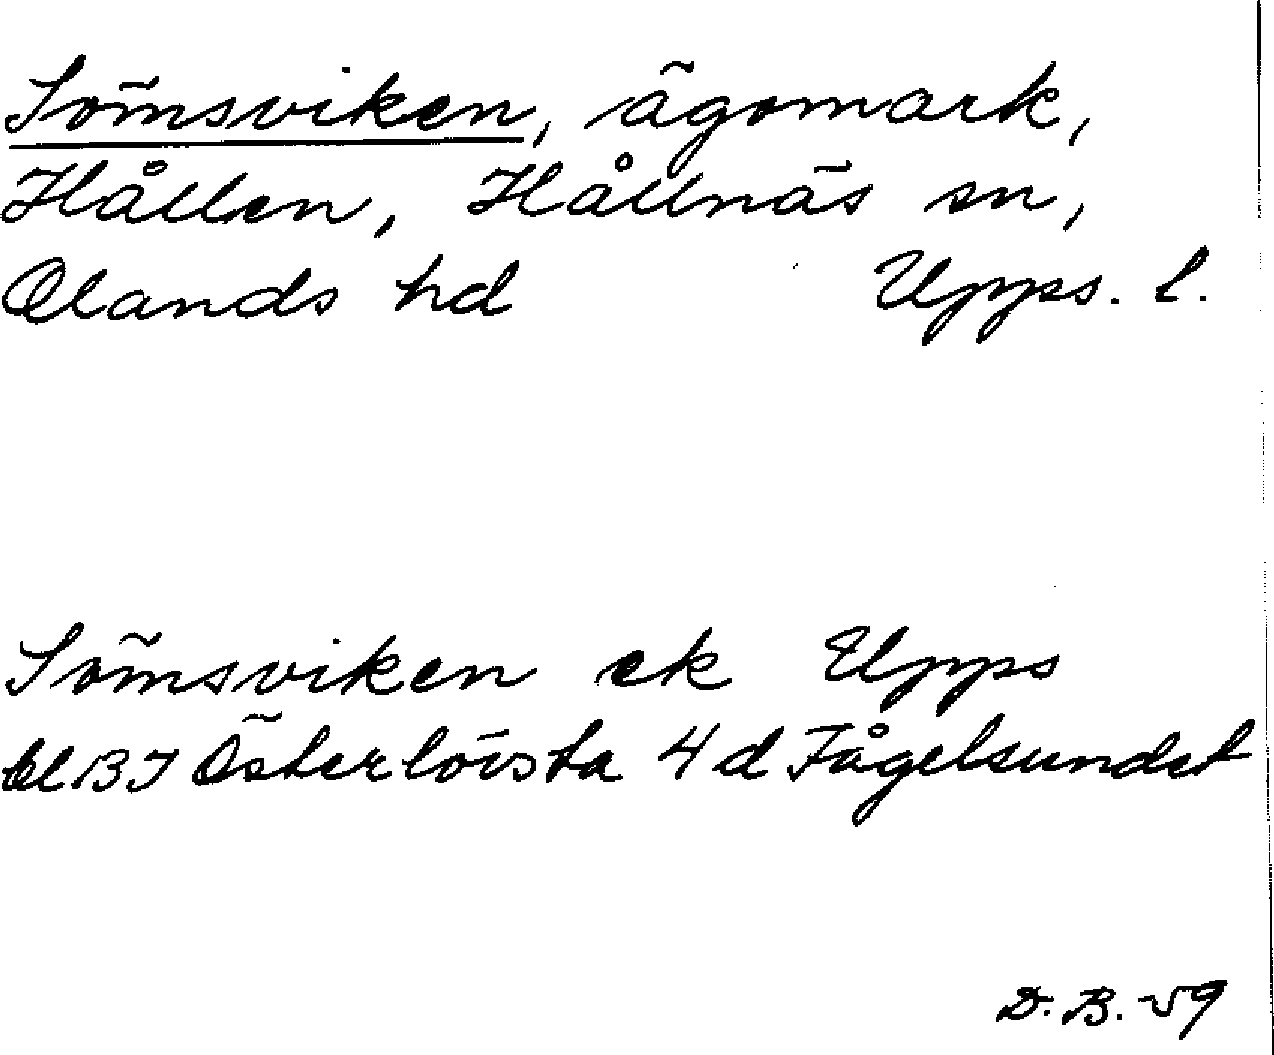 Sömsviken, ägomark,
Hållen, Hållnäs sn,
Olands hd Upps. l.
Sömsviken ek Upps
bl 137 Österlövsta 4d Fågelsundet
D.B. 59